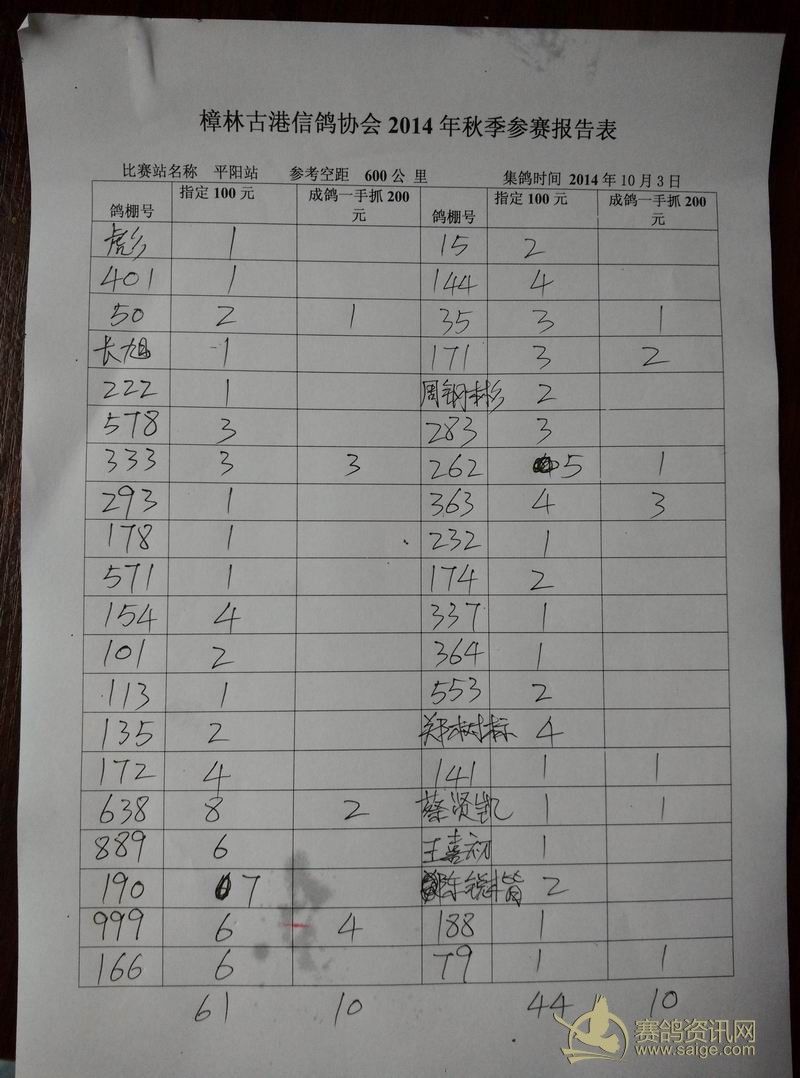 樟林古港信鸽协会2014年秋季参赛报告表
比赛站名称 平阳站 参考空距 600公 里 集鸽时间 2014年10月3日
鸽棚号 指定100元 成鸽一手抓200元 鸽棚号 指定100元 成鸽一手抓200元
彪 1 15 2
401 1 144 4
50 2 1 35 3 1
长旭 1 171 3 2
222 1 周钢彬 2
578 3 283 3
333 3 3 262 5 1
293 1 363 4 3
178 1 232 1
571 1 174 2
154 4 337 1
101 2 364 1
113 1 553 2
135 2 郑树标 4
172 4 141 1 1
638 8 2 蔡贤凯 1 1
889 6 王嘉初 1
190 7 陈锐 2
999 6 4 188 1
166 6 79 1 1
61 10 44 10
赛鸽资讯网
www.saige.com